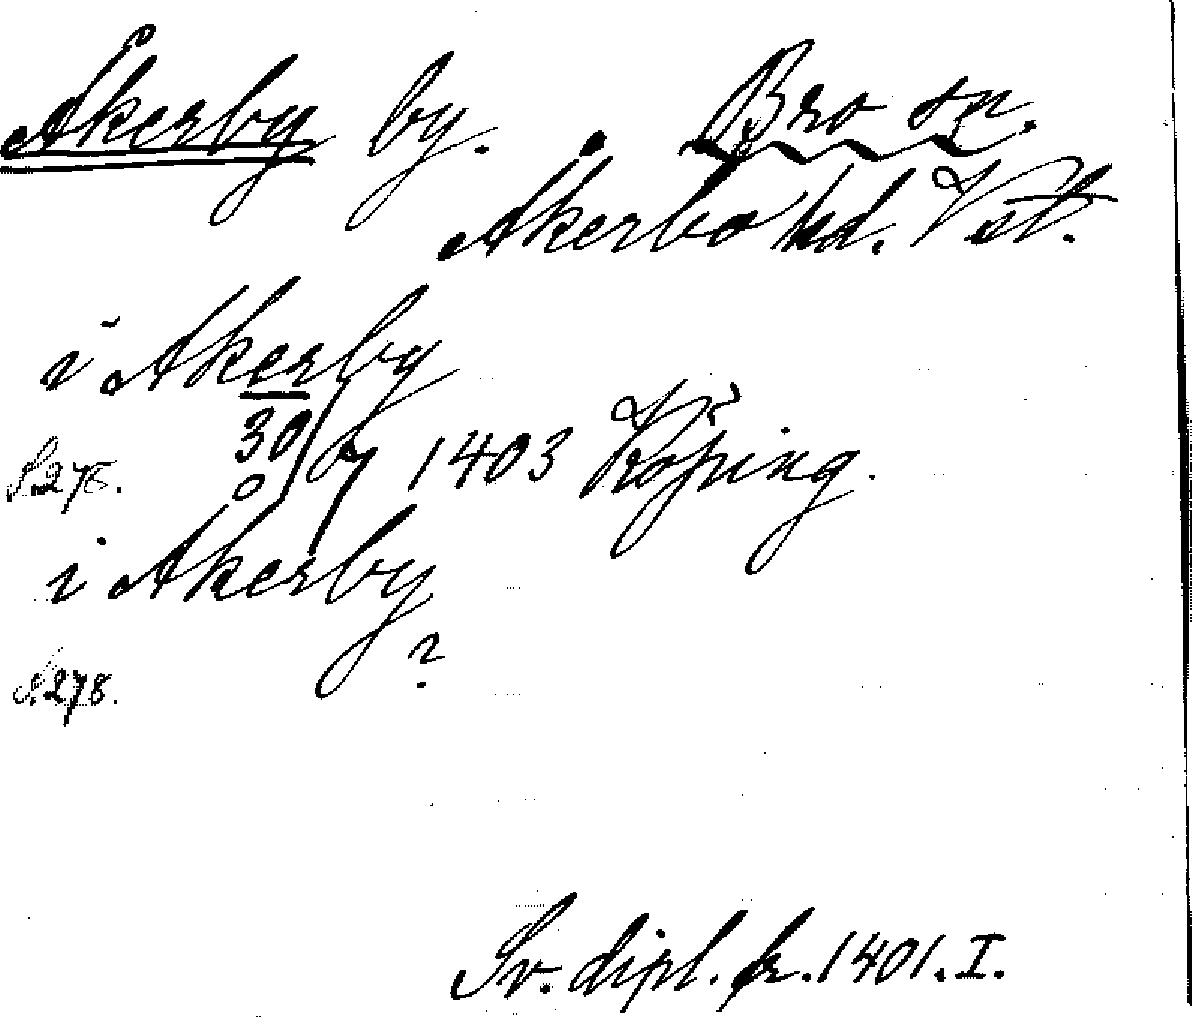 Åkerby by. Bro sn.
Åkerbo hd. Vst.
i Akerby
30/6 1403 Köping.
S. 275.
i Åkerby
?
S. 278.
Sv. dipl. fr. 1401. I.